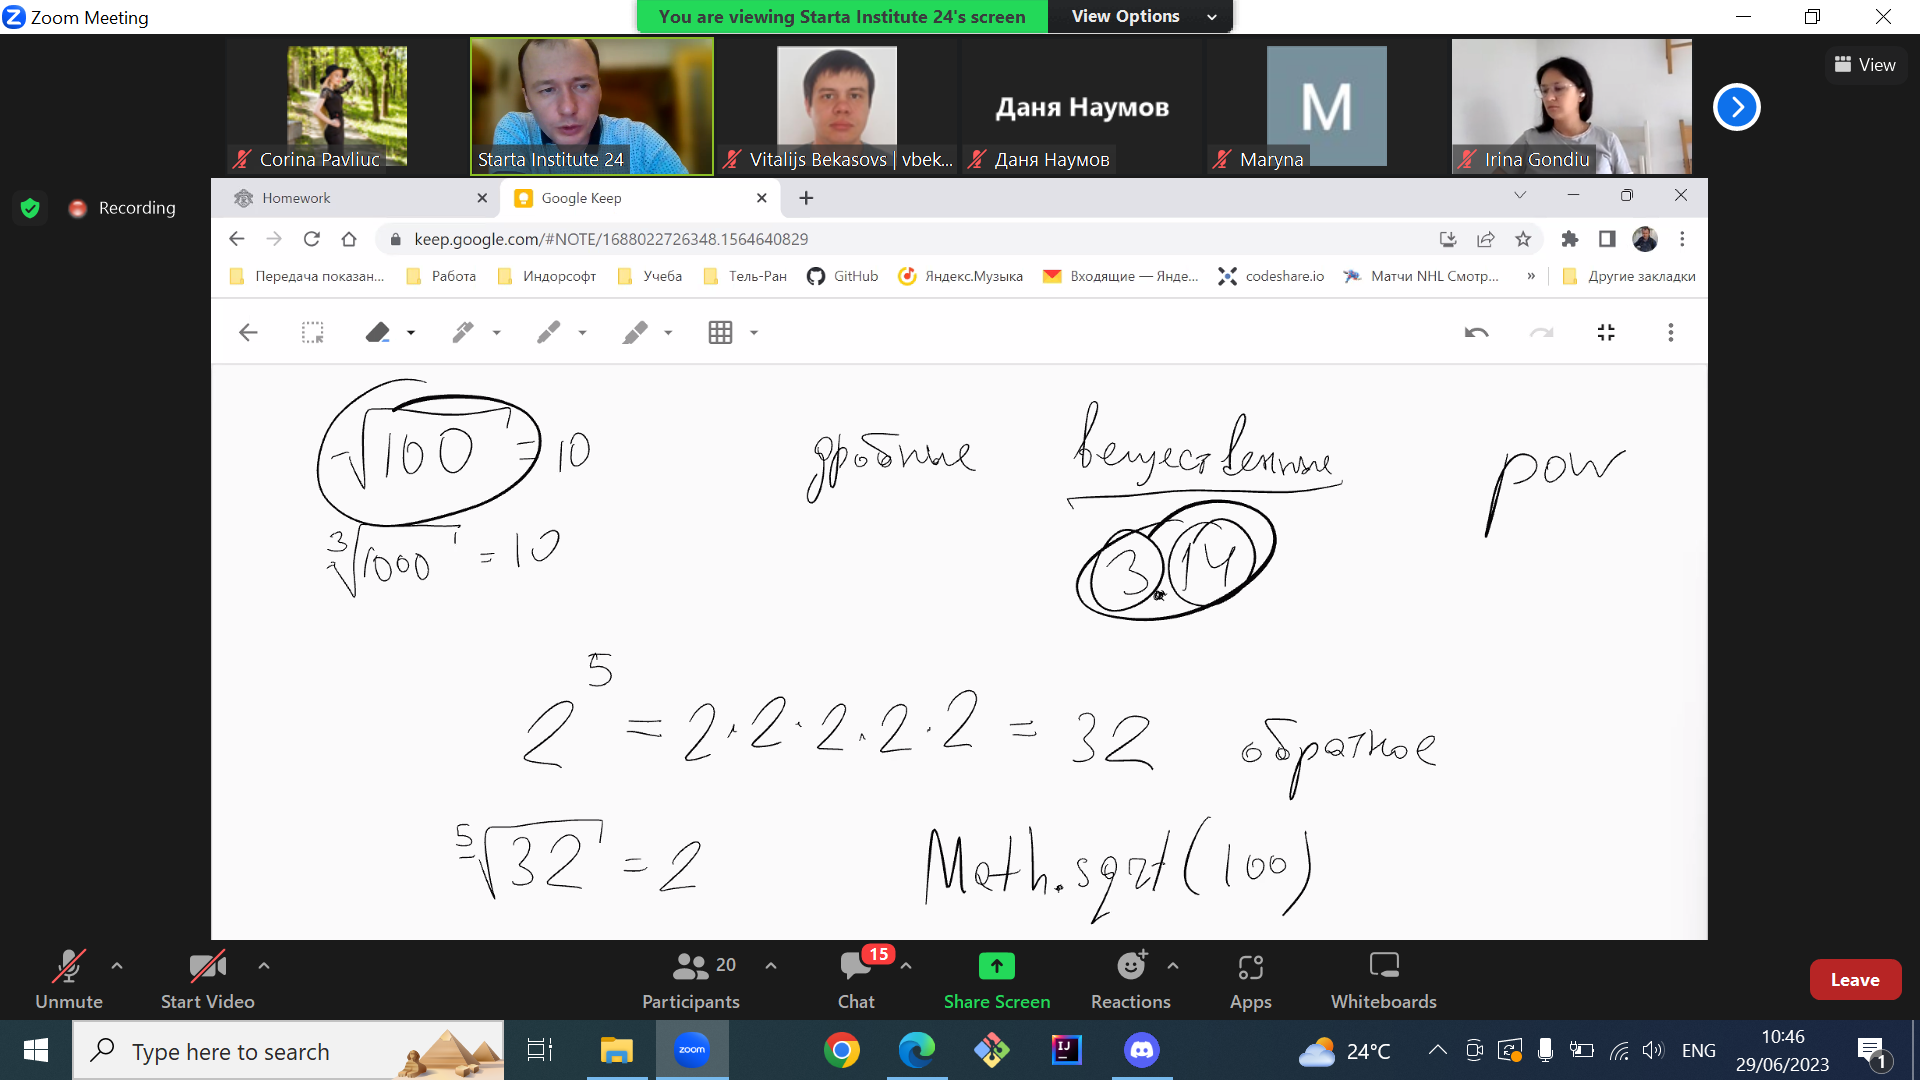 Zoom Meeting
You are viewing Starta Institute 24's screen View Options
Даня Наумов
M
Corina Pavliuc
Starta Institute 24
Vitalijs Bekasovs | vbek...
Даня Наумов
Maryna
Irina Gondiu
View
Recording
Homework
Google Keep
keep.google.com/#NOTE/1688022726348.1564640829
Передача показан... Работа Индорсофт Учеба Тель-Ран GitHub Яндекс.Музыка Входящие — Янде... codeshare.io Матчи NHL Смотр... » Другие закладки
√100 = 10 дробные вещественные pow
3√1000 = 10 3.14
2^5 = 2·2·2·2·2 = 32 обратное
5√32 = 2 Math.sqrt(100)
20
15
Unmute Start Video Participants Chat Share Screen Reactions Apps Whiteboards
Leave
Type here to search
zoom
IJ
24°C
ENG
10:46
29/06/2023
1